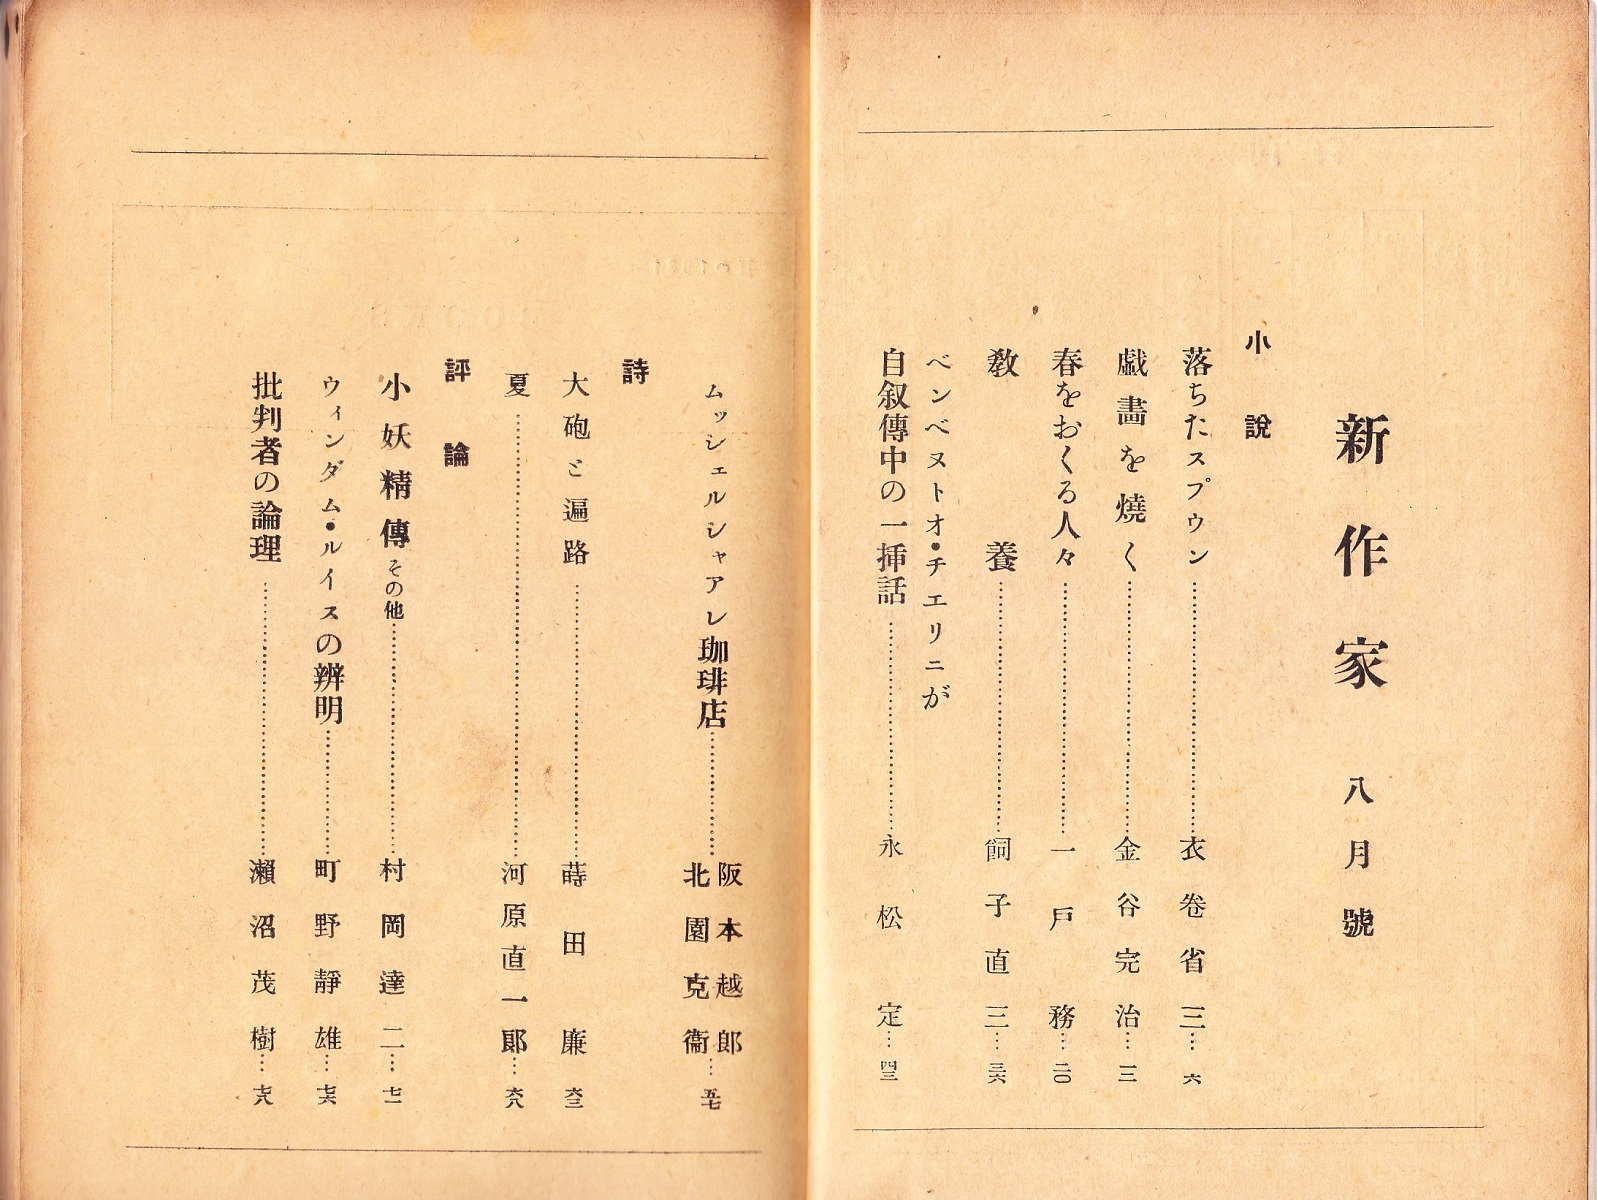 新作家 八月號
小說
落ちたスプウン……衣卷省三…六
戯畵を燒く……金谷完治…一三
春をおくる人々……一戸務…二〇
敎養……飼子直三…三六
ベンベヌトオ・チエリニが
自叙傳中の一揷話……永松定…四三
ムッシェルシャアレ珈琲店……阪本越郎 北園克衞…五七
詩
大砲と遍路……蒔田廉…六三
夏……河原直一郞…六八
評論
小妖精傳その他……村岡達二…七一
ウィンダム・ルイスの辨明……町野靜雄…七六
批判者の論理……瀨沼茂樹…七八